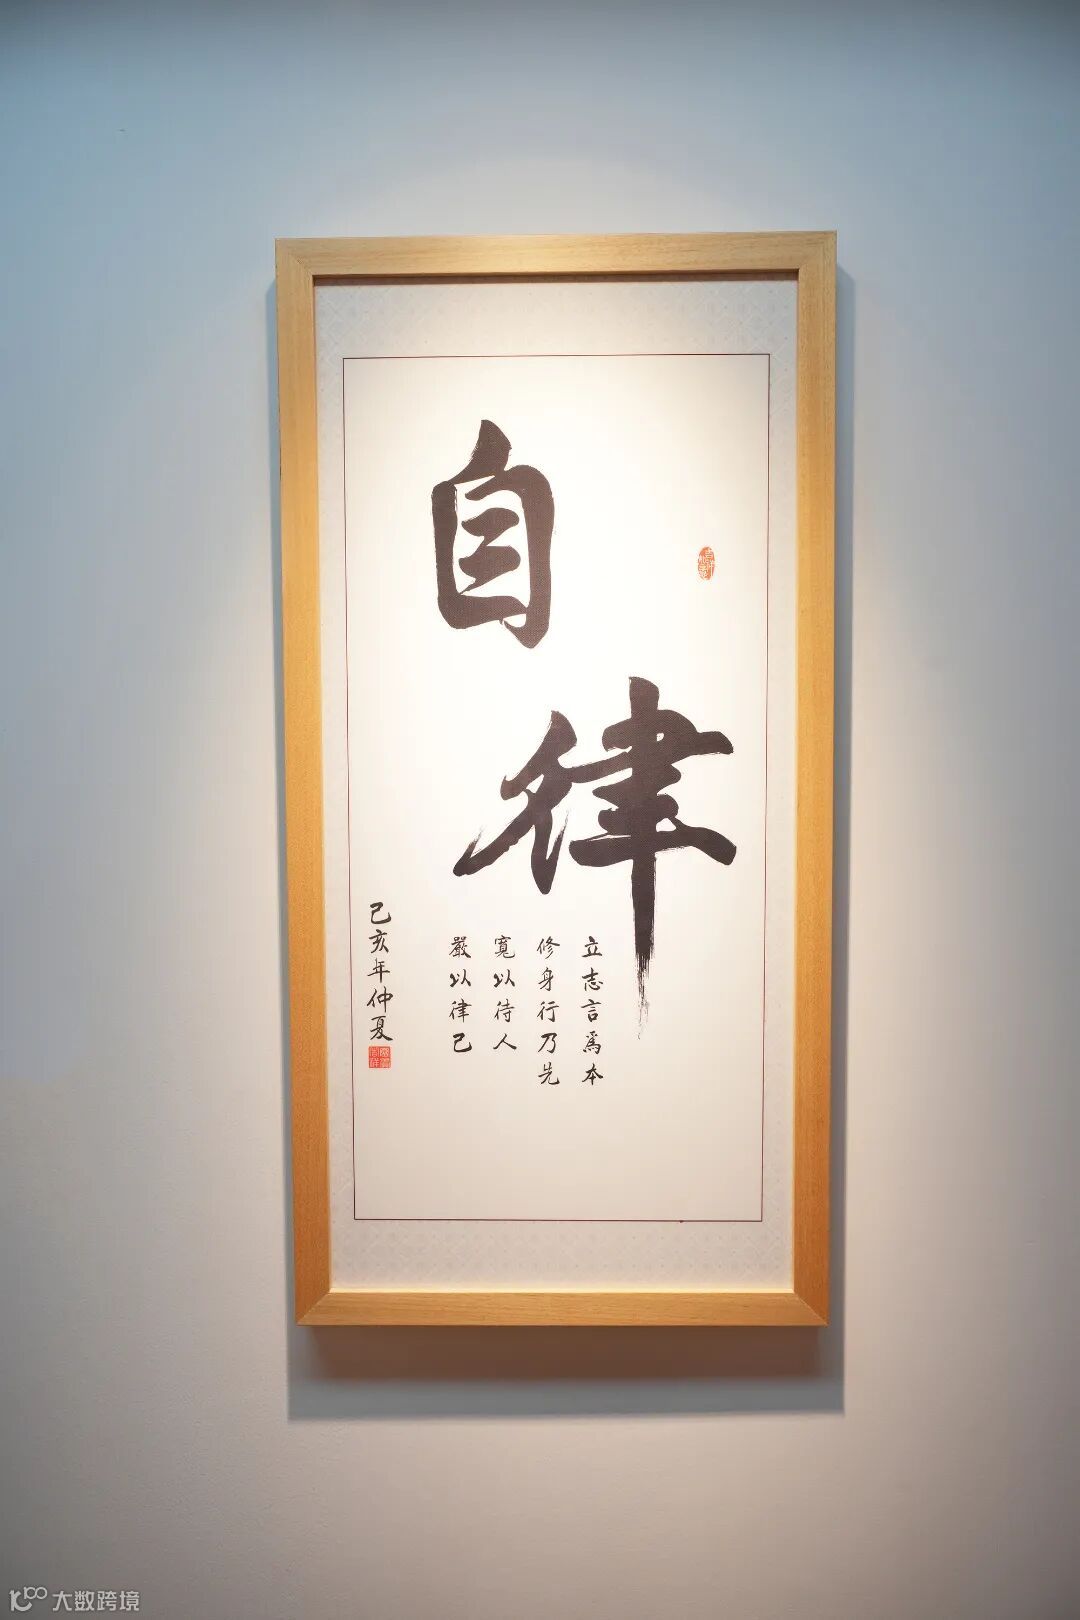 自律
立志言為本
修身行乃先
寬以待人
嚴以律己
己亥年仲夏
大数跨境